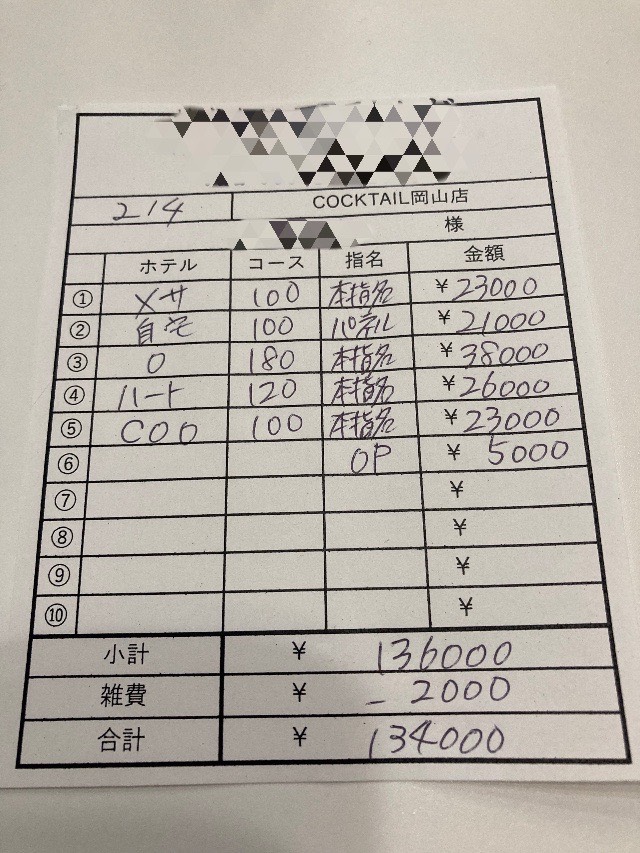 214 COCKTAIL岡山店
様
ホテル コース 指名 金額
① メサ 100 本指名 ¥23000
② 自宅 100 パネル ¥21000
③ O 180 本指名 ¥38000
④ ハート 120 本指名 ¥26000
⑤ COO 100 本指名 ¥23000
⑥ OP ¥ 5000
⑦ ¥
⑧ ¥
⑨ ¥
⑩ ¥
小計 ¥ 136000
雑費 ¥ - 2000
合計 ¥ 134000